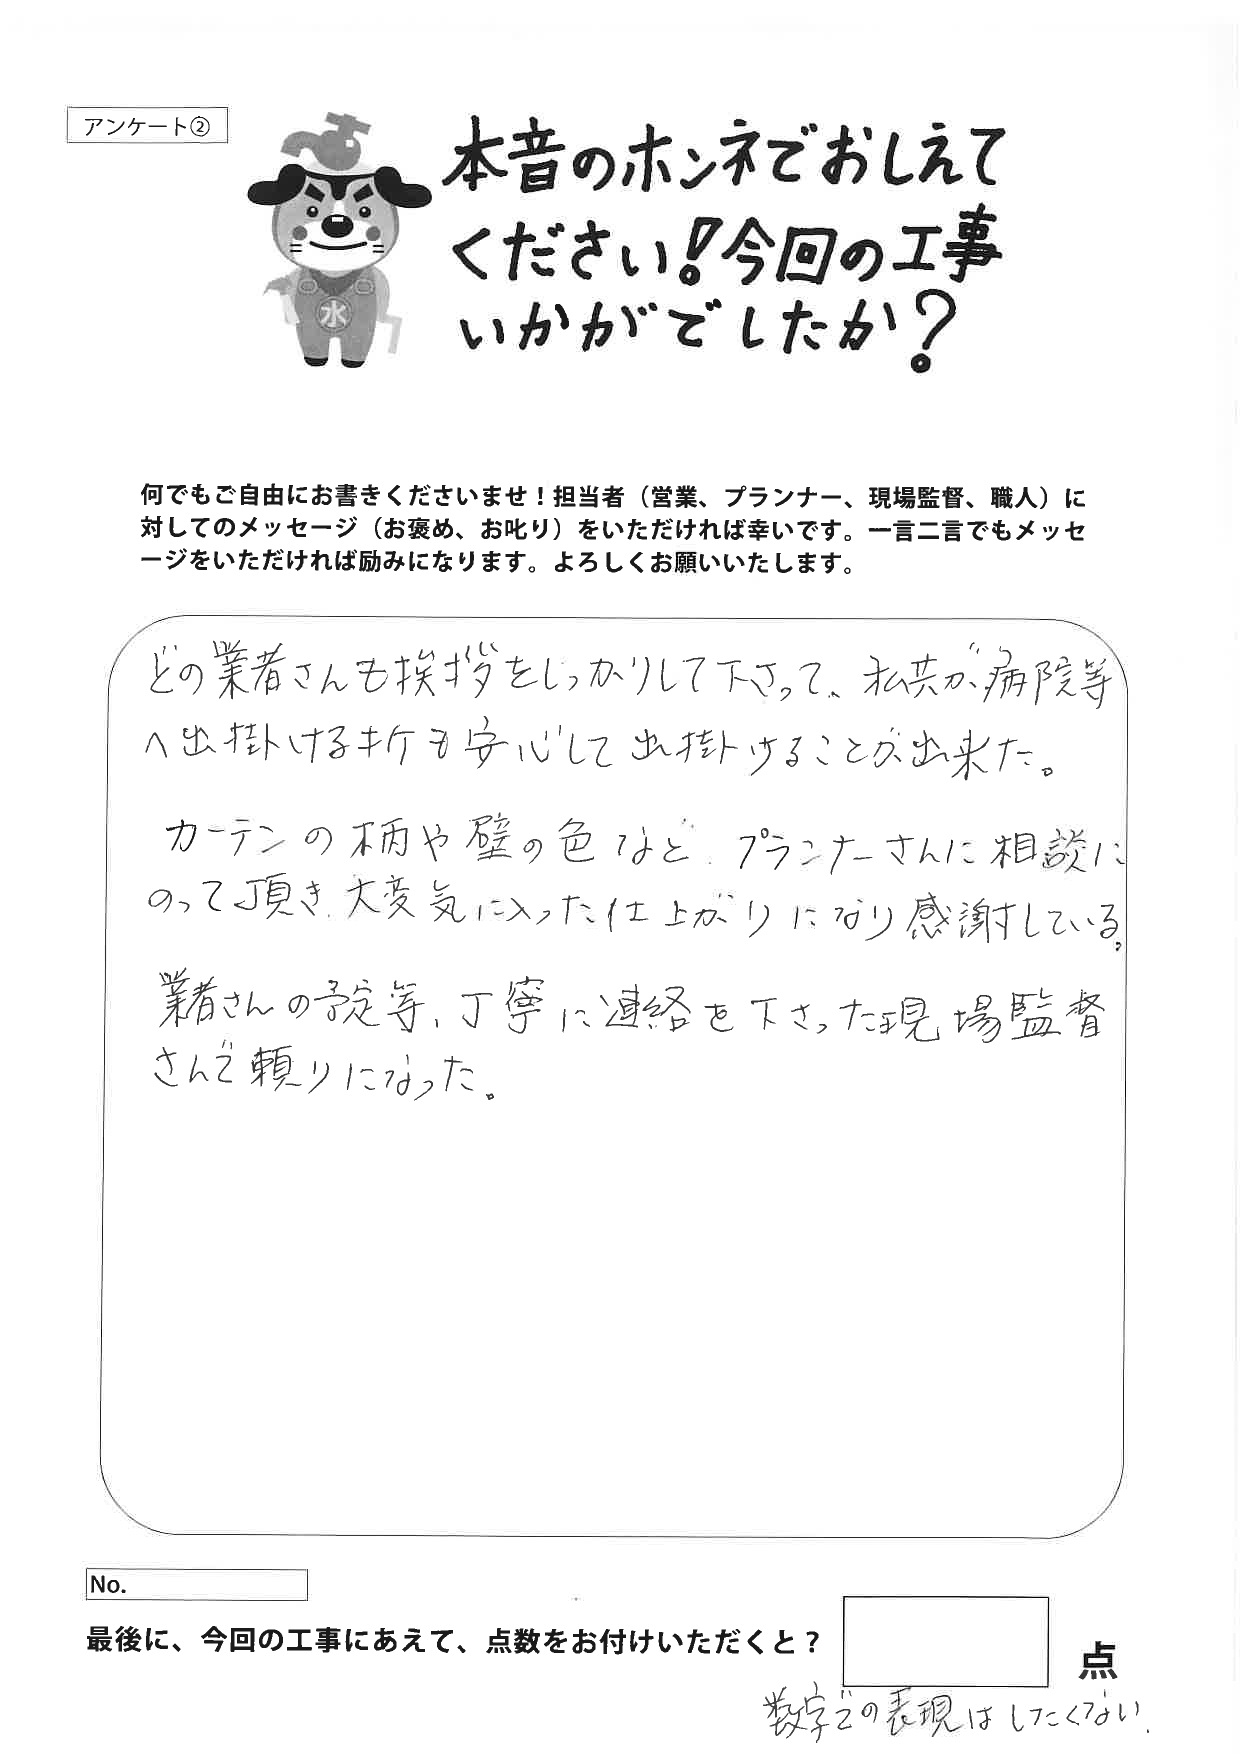 アンケート②
本音のホンネでおしえて
ください！今回の工事
いかがでしたか？
水
何でもご自由にお書きくださいませ！担当者（営業、プランナー、現場監督、職人）に
対してのメッセージ（お褒め、お叱り）をいただければ幸いです。一言二言でもメッセ
ージをいただければ励みになります。よろしくお願いいたします。
どの業者さんも挨拶をしっかりして下さって、私共が病院等
へ出掛ける折も安心して出掛けることが出来た。
カーテンの柄や壁の色など、プランナーさんに相談に
のって頂き、大変気に入った仕上がりになり感謝している。
業者さんの予定等、丁寧に連絡を下さった現場監督
さんで頼りになった。
No.
最後に、今回の工事にあえて、点数をお付けいただくと？
点
数字での表現はしたくない.